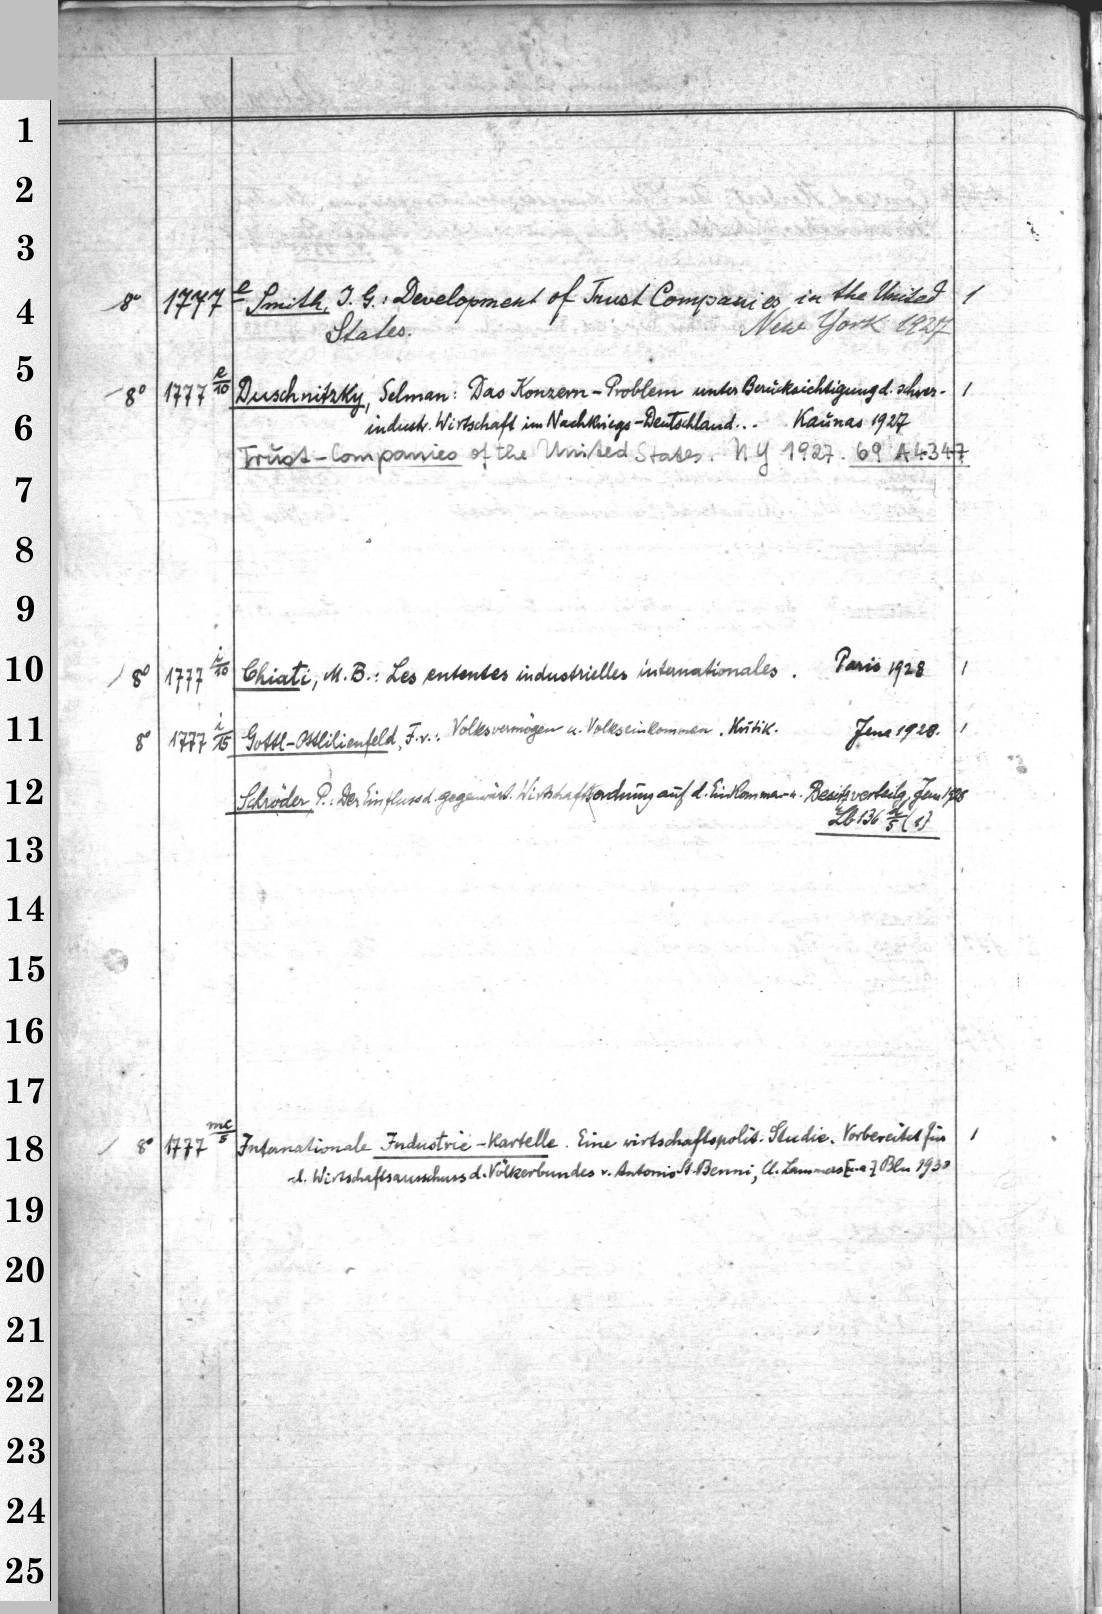 1
2
3
4
5
6
7
8
9
10
11
12
13
14
15
16
17
18
19
20
21
22
23
24
25
8° 1777 e Smith, J. G.: Development of Trust Companies in the United 1
States. New York 1927
8° 1777 e/10 Duschnitzky, Selman: Das Konzern-Problem unter Berücksichtigung d. schwer- 1
industr. Wirtschaft im Nachkriegs-Deutschland... Kaunas 1927
Trust-Companies of the United States. N Y 1927. 69 A 4347
8° 1777 i/10 Chiati, M. B.: Les ententes industrielles internationales. Paris 1928 1
8° 1777 i/15 Gottl-Ottlilienfeld, F. v.: Volksvermögen u. Volkseinkommen. Kritik. Jena 1928. 1
Schröder P.: Der Einfluss d. gegenwärt. Wirtschaftsordnung auf d. Einkommen- u. Besitzverteilg. Jena 1928
136 /5 (1)
8° 1777 mc/5 Internationale Industrie-Kartelle. Eine wirtschaftspolit. Studie. Vorbereitet für 1
d. Wirtschaftsausschuss d. Völkerbundes v. Antonio St. Benni, Cl. Lammers [u. a.] Bln 1930